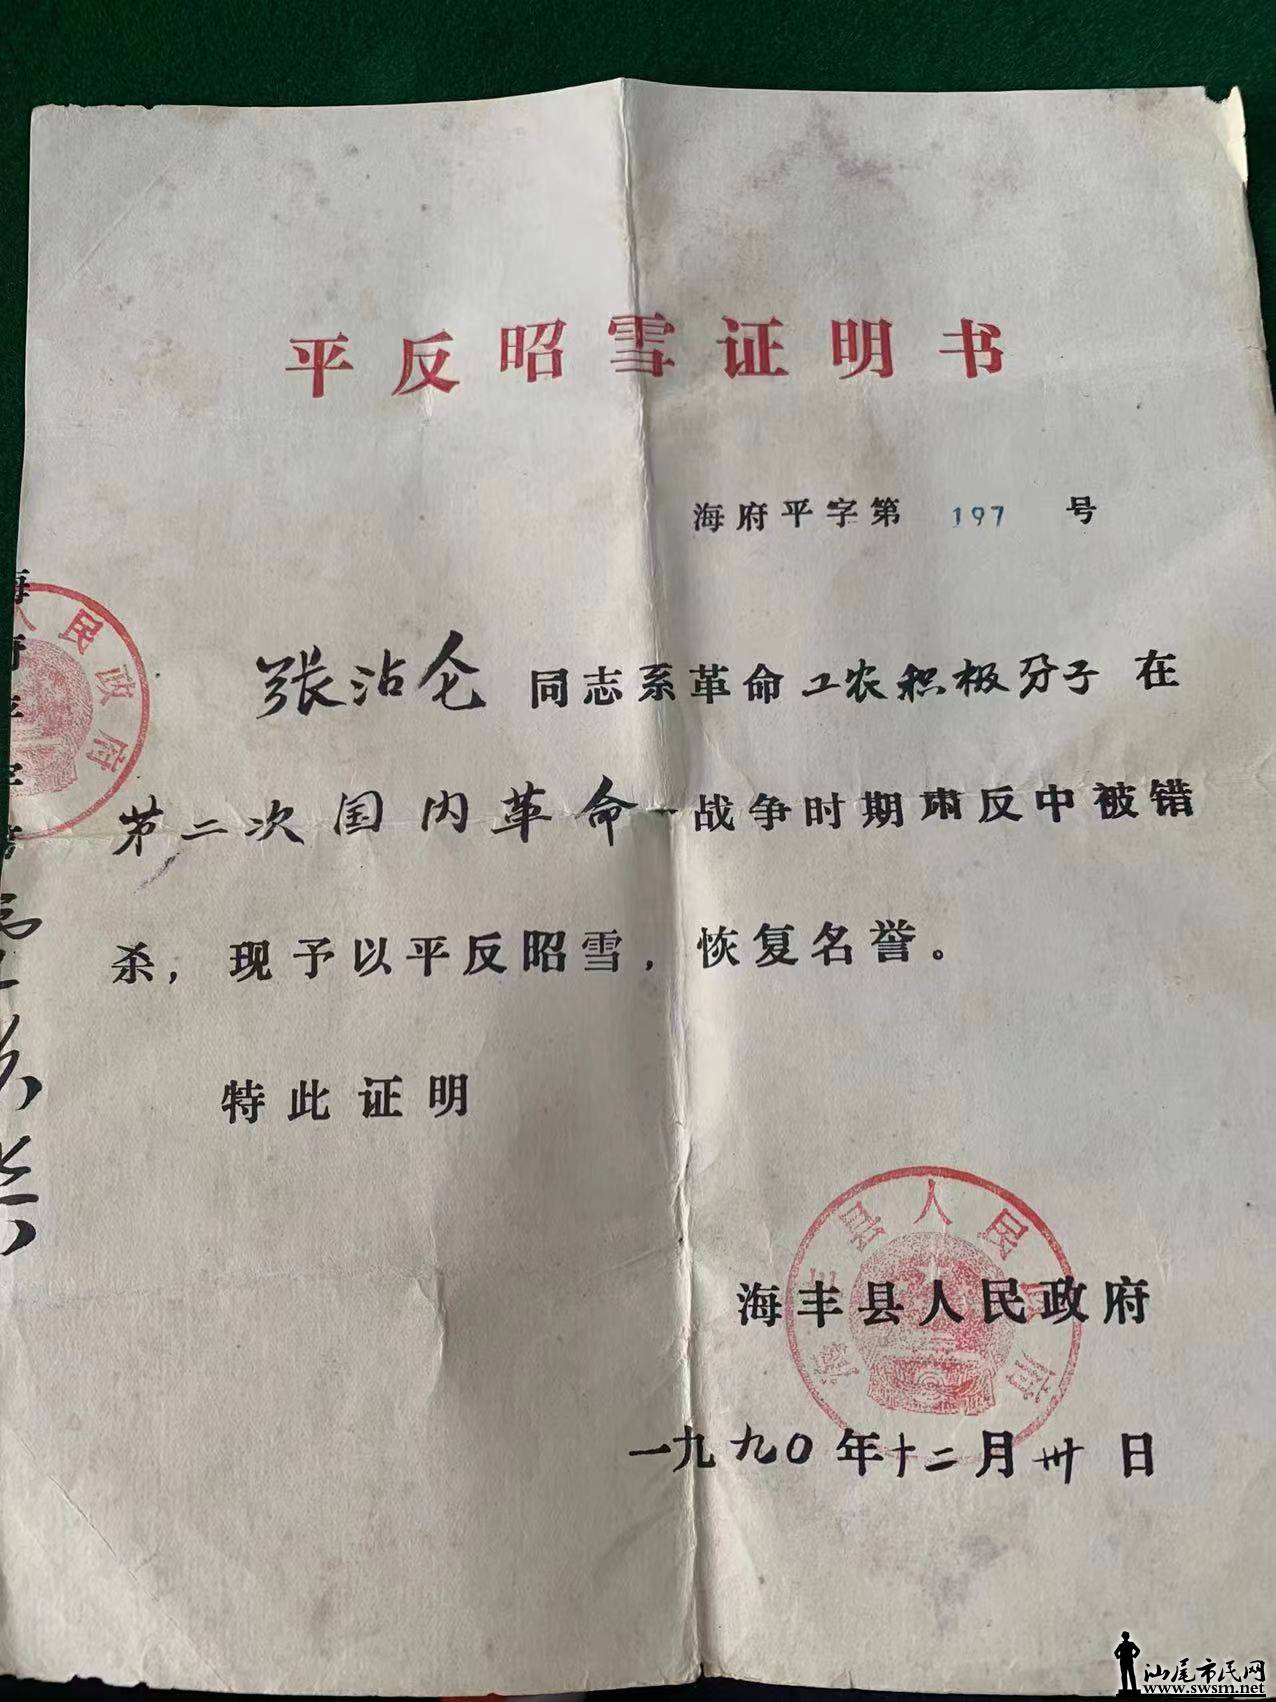 平反昭雪证明书
海府平字第 197 号
张沾仑同志系革命工农积极分子在
第二次国内革命战争时期肃反中被错
杀，现予以平反昭雪，恢复名誉。
特此证明
海丰县人民政府
一九九〇年十二月卅日
人民政府
县人民
府
汕尾市民网
www.swsm.net